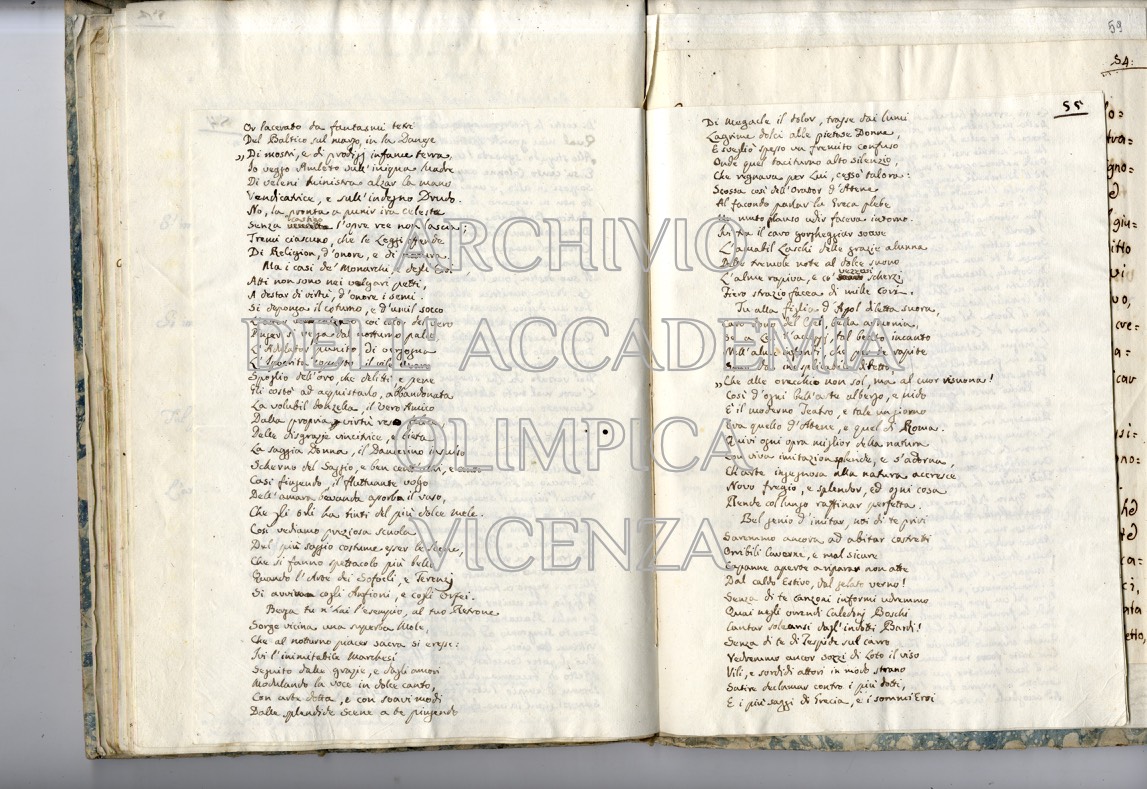 Or lacerato da fantasmi tetri
Del Baltico sul margo, in la Danese
„ Di mostri, e di prodigj infame terra,
Io veggo Amleto sull'iniqua Madre
Di veleni ministra alzar la mano
Vendicatrice, e sull'indegno Drudo.
No, la pronta a punir ira celeste
Senza castigo l'opre ree non lascia;
Tremi ciascuno, che le Leggi offende
Di Religion, d'onore, e di natura.
Ma i casi de' Monarchi, degli Eroi,
Atti non sono nei volgari petti,
A destar di virtù, d'onore i semi.
Si deponga il coturno, e d'umil socco
coi color del vero
Pinger si vegga dal notturno palco
L'Adulator punito di vergogna
L'Ipocrita il vile
Spoglio dell'oro che delitti, e pene
Gli costò ad acquistarlo, abbandonata
La volubil donzella, il vero Amico
Dalla propria virtù reso felice,
Delle disgrazie vincitrice, e lieta
La saggia Donna, il Damerino insulso
Scherno del Saggio, e ben
Così fingendo, il fluttuante volgo
Dell'amara bevanda aporba il vaso,
Che gli orli ha tinti del più dolce mele.
Così vediamo preziosa scuola
Del più saggio costume esser le Scene,
Che si fanno spettacolo più bello
Quando l'Arte dei Sofocli, e Terenzj
Si avviva cogli Anfioni, e cogli Orfei.
Berga tu n'hai l'esempio, al tuo Retrone
Sorge vicina una superba Mole,
Che al notturno piacer sacra si eresse:
Ivi l'inimitabile Marchesi
Seguito dalle grazie, e dagli amori
Modulando la voce in dolce canto,
Con arte dotta, e con soavi modi
Dalle splendide Scene a te pingendo
59
54:
55
Di Megacle il dolor, trasse dai lumi
Lagrime dolci alle pietose Donne,
E svegliò spesso un fremito confuso
Onde quel taciturno alto silenzio,
Che regnava per Lui, cessò talora:
Scossa così dell'Orator d'Atene
Al facondo parlar la Greca plebe
Un muto plauso udir faceva intorno.
In tra il caro gorgheggiar soave
L'amabil Laschi delle grazie alunna
Dalle tremole note al dolce suono
L'alme rapiva, e co' vezzosi scherzi
Fiero strazio facea di mille cori.
Tu alla figlia d'Apol diletta suora,
Caro dono del Ciel, bella armonia,
Se a Lei t'accoppj, tal desto incanto
Nell'alme infondi, che pare rapite
Son dal inesplicabil diletto,
„ Che alle orecchie non sol, ma al cuor risuona!
Così d'ogni bell'arte albergo, e nido
È il moderno Teatro, e tale un giorno
Era quello d'Atene, e quel di Roma.
Quivi ogni opra miglior della natura
Con viva imitazion splende, e s'adorna,
Ch'arte ingegnosa alla natura accresce
Novo fregio, e splendor, ed ogni cosa
Rende col lungo raffinar perfetta.
Bel genio d'imitar, noi di te privi
Saremmo ancora ad abitar costretti
Orribili Caverne, e mal sicure
Capanne aperte a riparar non atte
Dal caldo Estivo, dal gelato verno!
Senza di te canzoni informi udremmo
Quai negli orrendi Caledonj Boschi
Cantar soleansi dagl'indotti Bardi!
Senza di te di Tespide sul carro
Vedremmo ancor sozzi di loto il viso
Vili, e sordidi attori in modo strano
Satire declamar contro i più dotti,
E i più saggi di Grecia, e i sommi Eroi
ARCHIVIO
DELL'ACCADEMIA
OLIMPICA
VICENZA